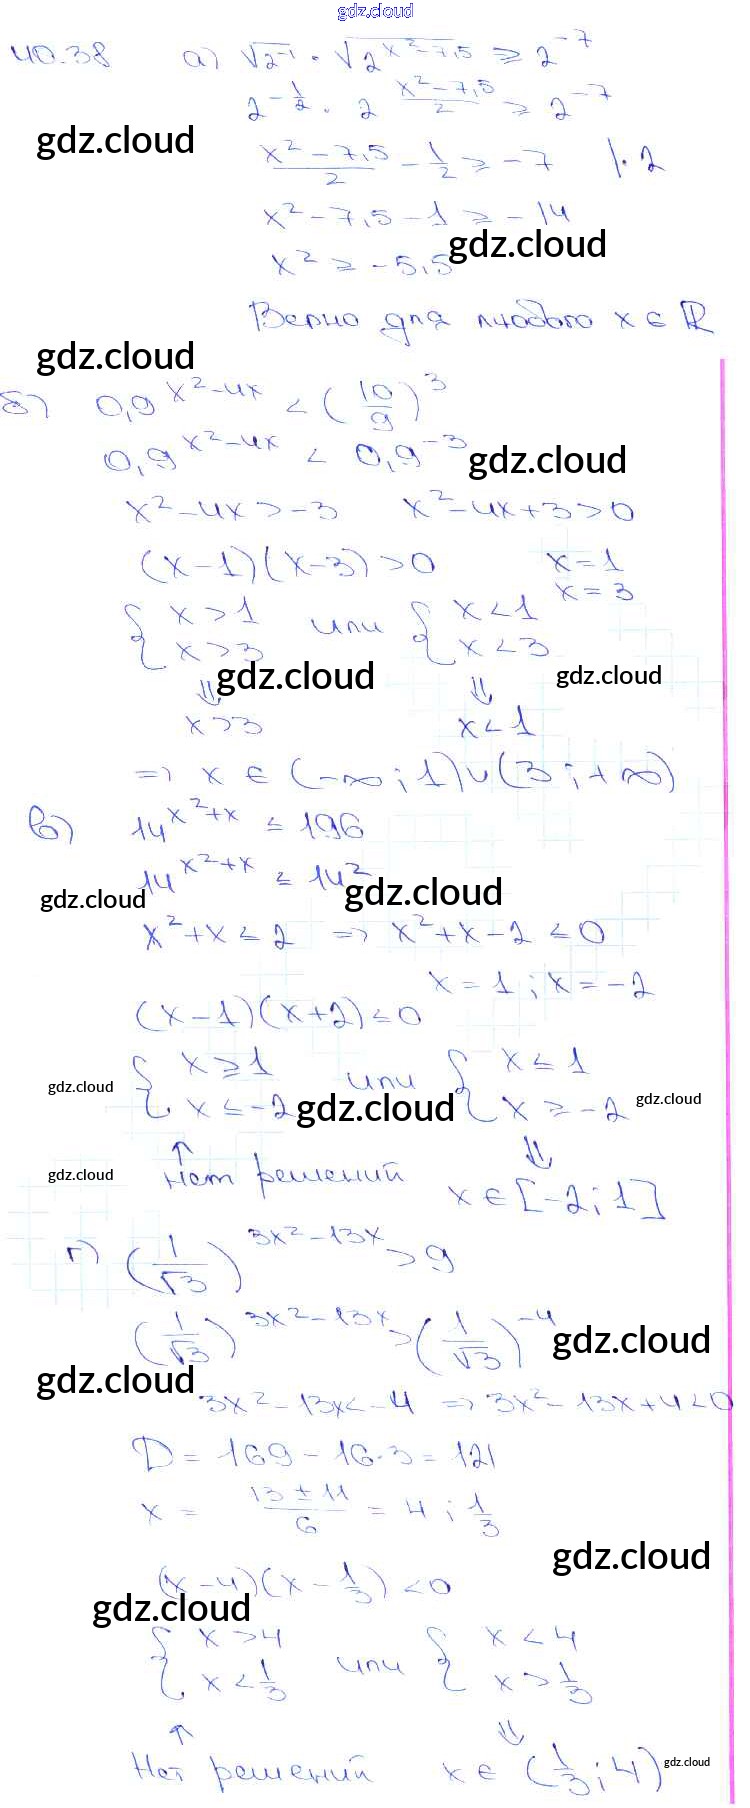 gdz.cloud
40.38 а) √2⁻¹ · √2^(x²-7,5) ≥ 2⁻⁷
2^(-1/2) · 2^((x²-7,5)/2) ≥ 2⁻⁷
gdz.cloud
(x²-7,5)/2 - 1/2 ≥ -7 |·2
x²-7,5-1 ≥ -14
gdz.cloud
x² ≥ -5,5
Верно для любого x ∈ ℝ
gdz.cloud
б) 0,9^(x²-4x) < (10/9)³
0,9^(x²-4x) < 0,9⁻³
gdz.cloud
x²-4x > -3 x²-4x+3 > 0
(x-1)(x-3) > 0 x=1
x=3
{ x > 1 или { x < 1
x > 3 x < 3
gdz.cloud gdz.cloud
⇓ ⇓
x > 3 x < 1
⇒ x ∈ (-∞; 1) ∪ (3; +∞)
в) 14^(x²+x) ≤ 196
14^(x²+x) ≤ 14²
gdz.cloud gdz.cloud
x²+x ≤ 2 ⇒ x²+x-2 ≤ 0
x=1; x=-2
(x-1)(x+2) ≤ 0
{ x ≥ 1 или { x ≤ 1
gdz.cloud
x ≤ -2 x ≥ -2
gdz.cloud gdz.cloud
↑ ⇓
gdz.cloud
Нет решений x ∈ [-2; 1]
г) (1/√3)^(3x²-13x) > 9
(1/√3)^(3x²-13x) > (1/√3)⁻⁴
gdz.cloud
gdz.cloud
3x²-13x < -4 ⇒ 3x²-13x+4 < 0
D = 169 - 16·3 = 121
x = (13±11)/6 = 4; 1/3
gdz.cloud
(x-4)(x-1/3) < 0
gdz.cloud
{ x > 4 или { x < 4
x < 1/3 x > 1/3
↑ ⇓
Нет решений x ∈ (1/3; 4)
gdz.cloud